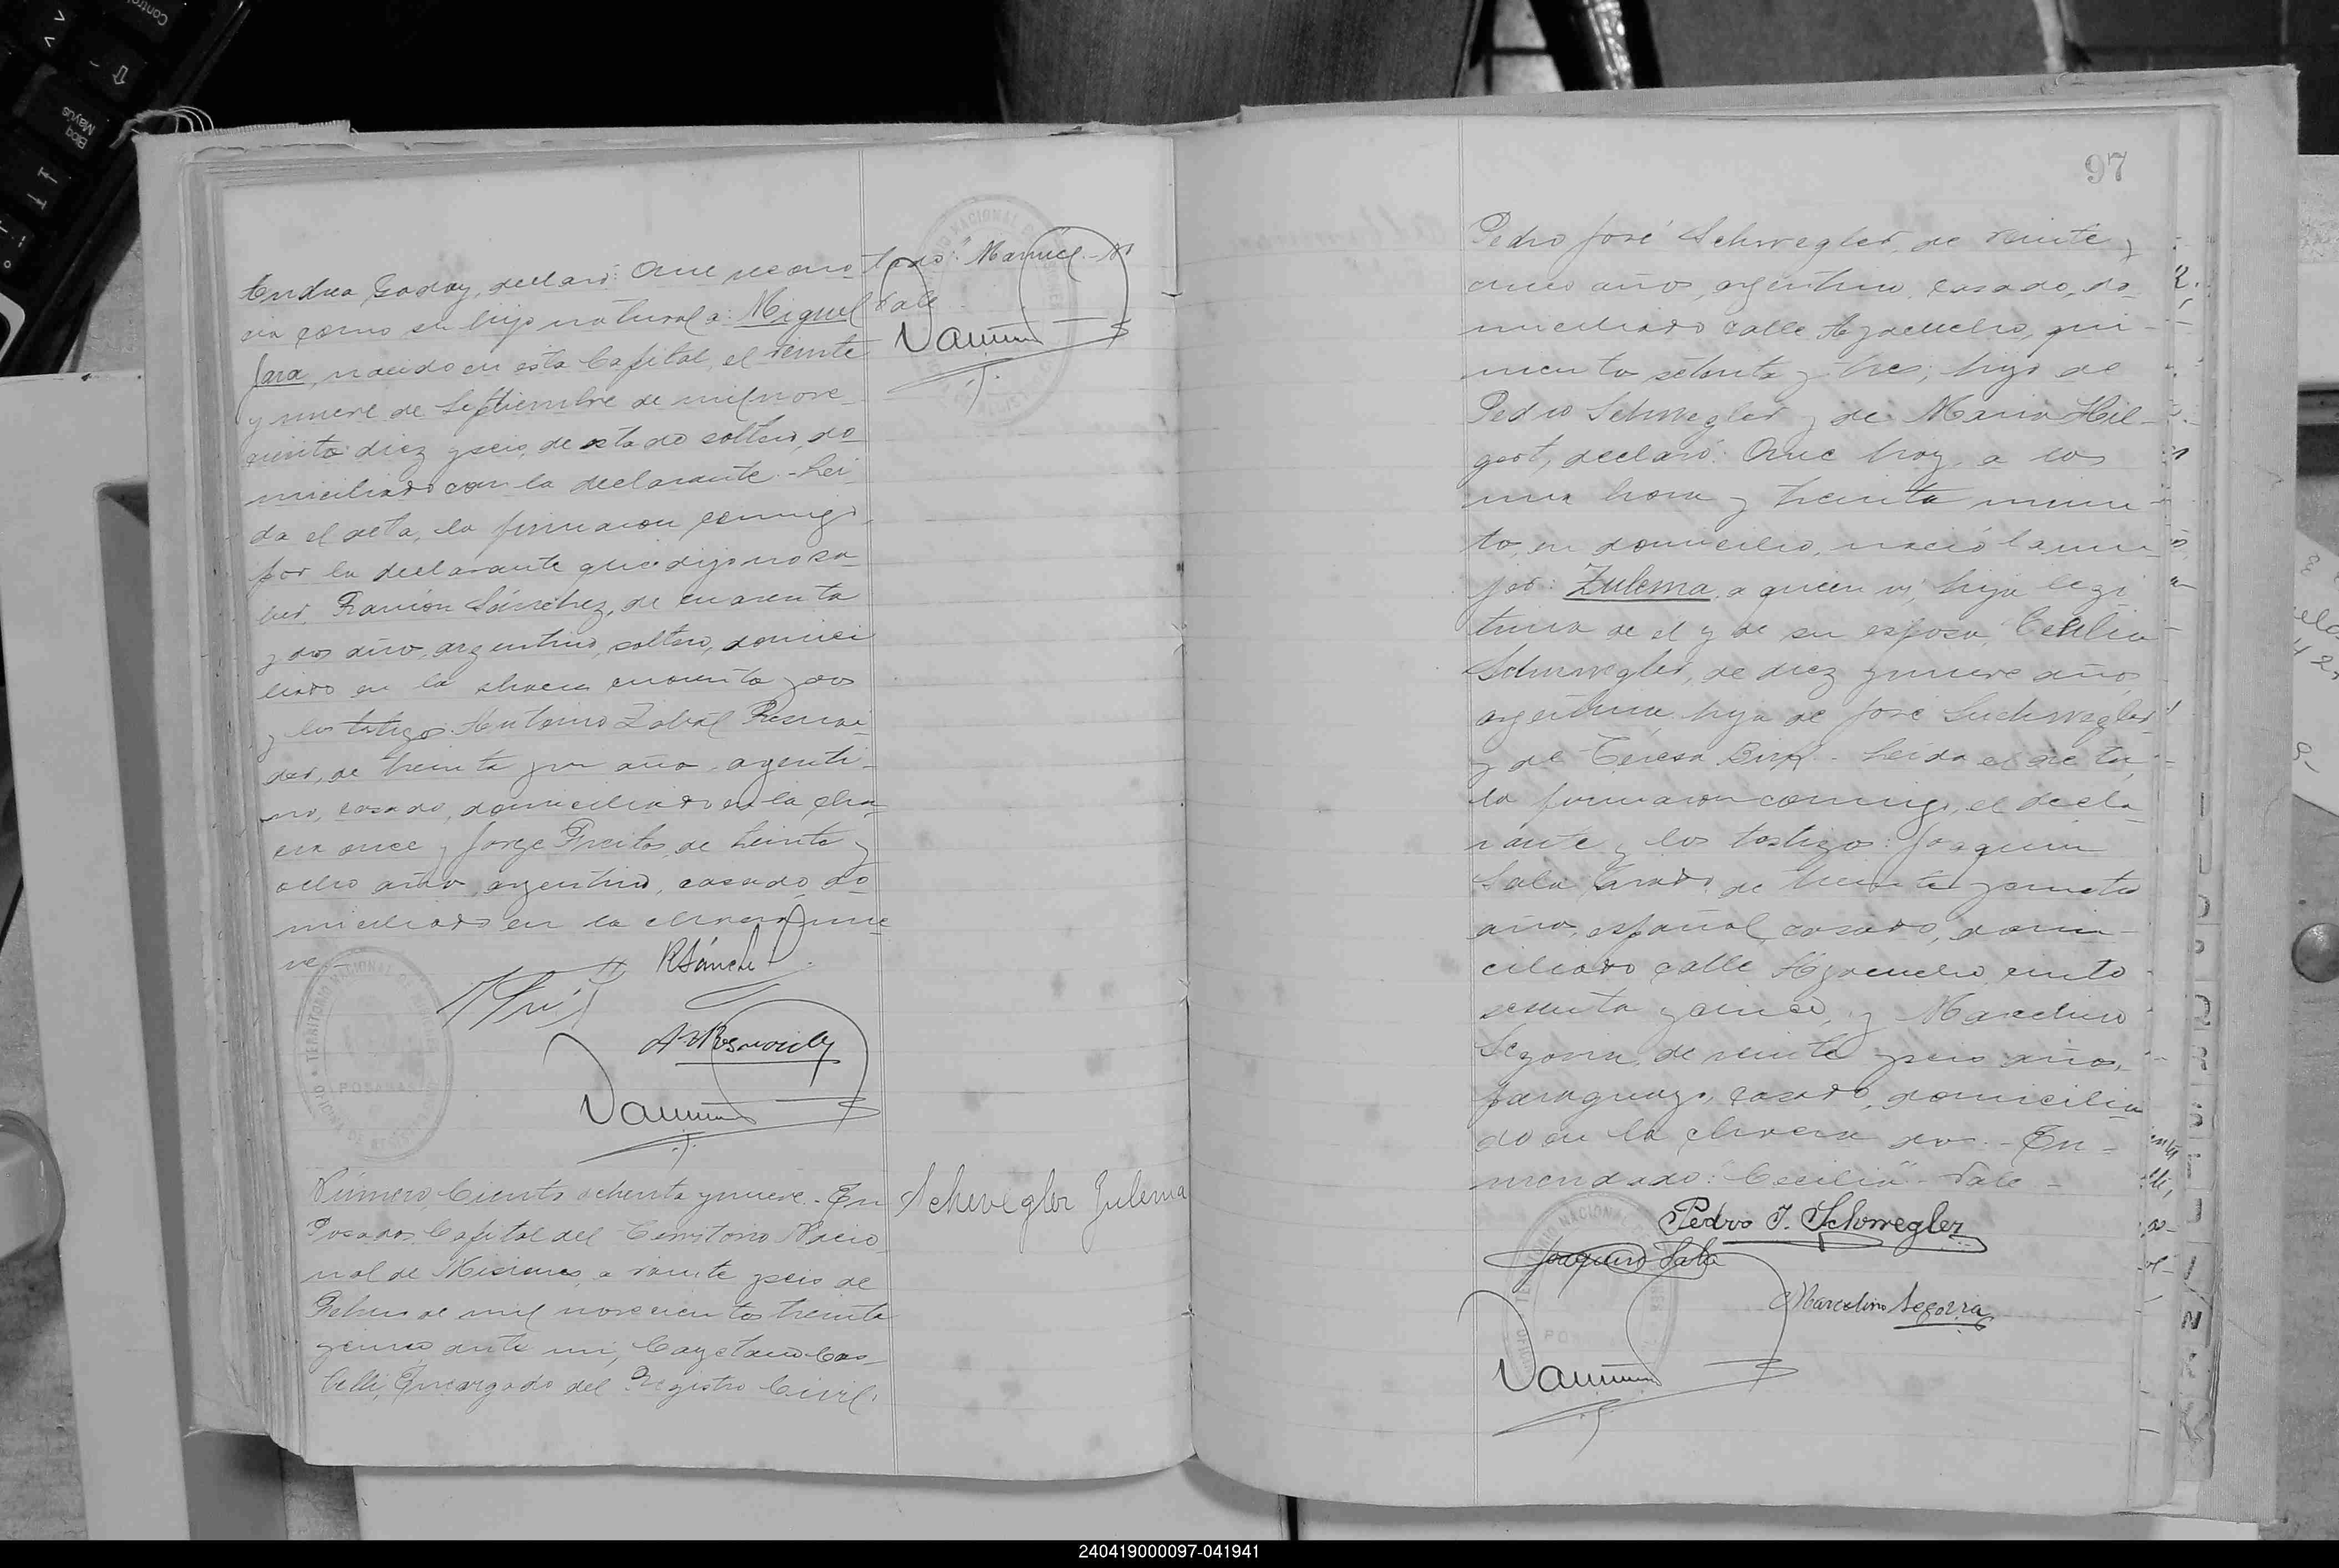 Andrea Godoy, declaró: Que recono-
cia como su hijo natural a: Miguel
Jara, nacido en esta Capital, el veinte
y nueve de Septiembre de mil nove-
cientos diez y seis, de estado soltero, do-
miciliado con la declarante. - Leí-
da el acta, la firmaron conmigo,
por la declarante que dijo no sa-
ber, Ramón Sánchez, de cuarenta
y dos años, argentino, soltero, domici-
liado en la chacra cuarenta y dos
y los testigos: Antonio
de treinta y un años, argenti-
no, casado, domiciliado en la cha-
cra once y Jorge Freitas, de treinta y
ocho años, argentino, casado, do-
miciliado en la chacra nue-
ve. -
R Sánche
TERRITORIO NACIONAL DE MISIONES
POSADAS
Número Ciento ochenta y nueve. - En
Posadas Capital del Territorio Nacio-
nal de Misiones, a veinte y seis de
Febrero de mil novecientos treinta
y cinco, ante mi, Cayetano Cas-
telli, Encargado del Registro Civil,
tado: "Manuel" - No
Vale
Schevegler Zulema
97
Pedro José Schwegler, de veinte y
cinco años, argentino, casado, do-
miciliado calle Ayacucho, qui-
nientos setenta y tres, hijo de
Pedro Schwegler y de Maria Hil-
gert, declaró: Que hoy, a las
una hora y treinta minu-
tos, en domicilio, nació la mu-
jer: Zulema, a quien ví, hija legí-
tima de él y de su esposa, Cecilia
Schwegler, de diez y nueve años,
argentina, hija de José Suchwegler
y de Teresa - Leída el acta,
la firmaron conmigo, el decla-
rante y los testigos: Joaquin
Sala de treinta y cuatro
años, español, casado, domi-
ciliado calle Ayacucho ciento
sesenta y cinco, y Marcelino
Segovia, de veinte y seis años,
paraguayo, casado, domicilia-
do en la chacra dos. - En-
mendado: "Cecilia" - Vale -
Pedro J. Schwegler
Joaquin Sala
Marcelino Segovia
240419000097-041941